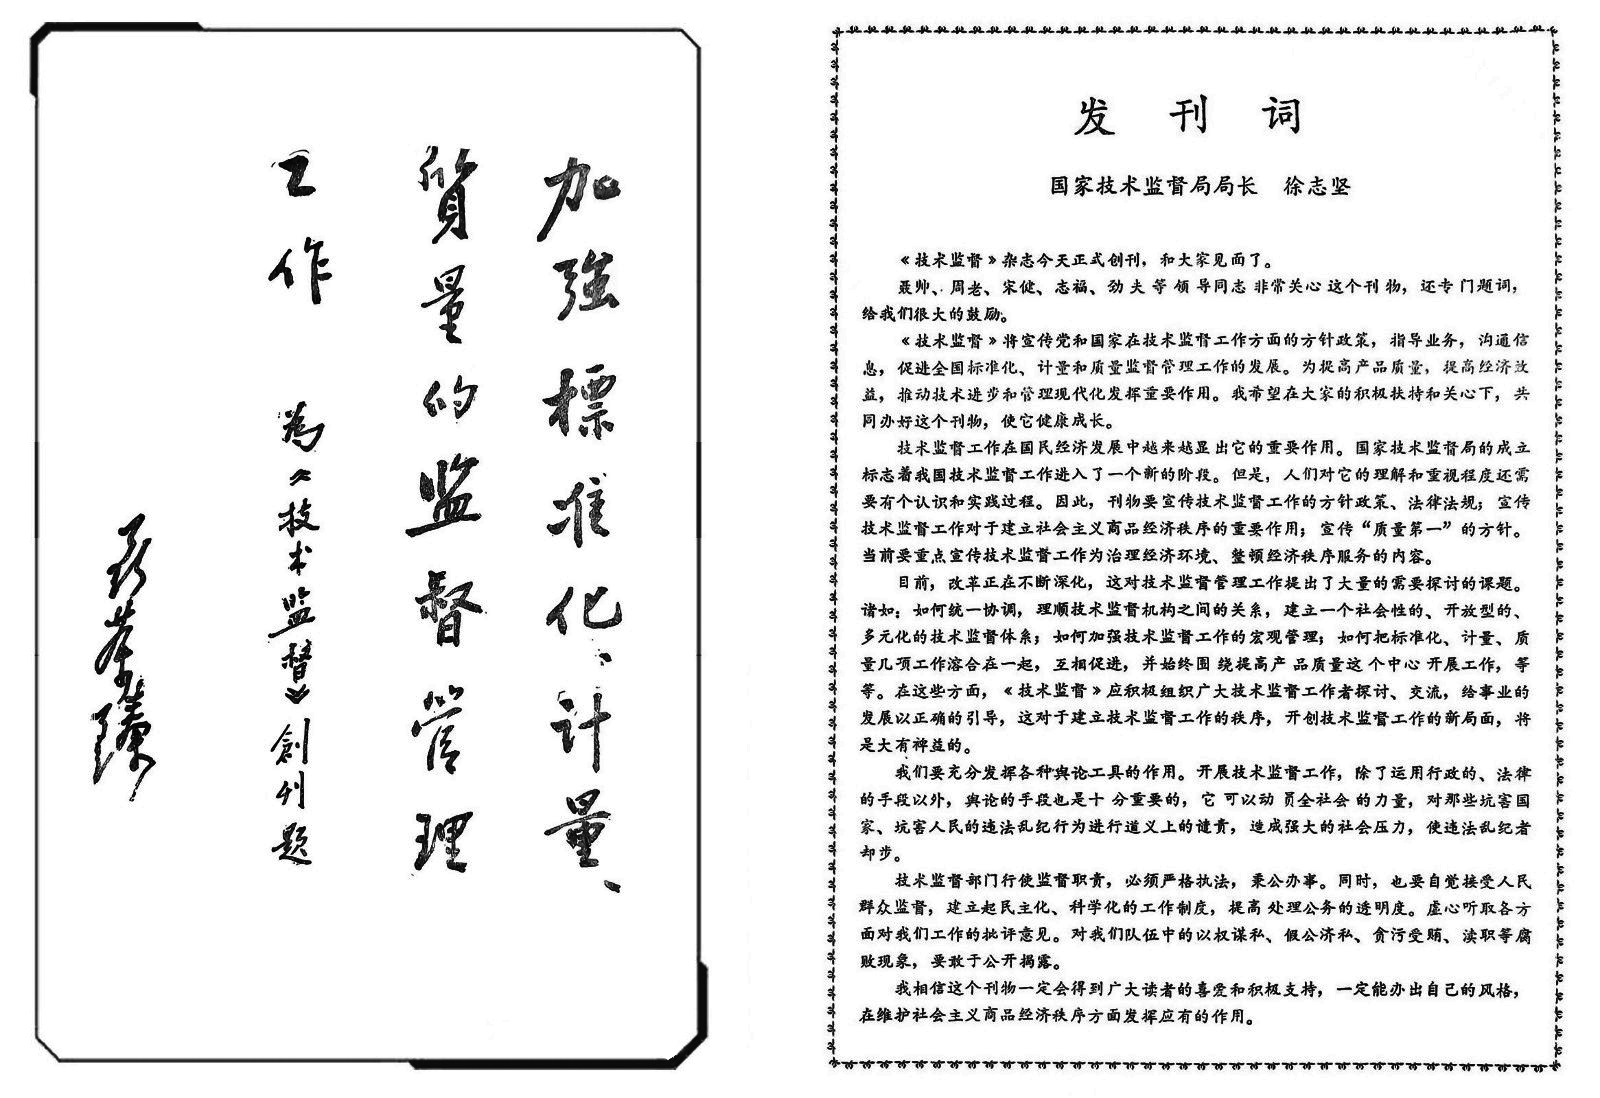 加強標准化、计量、
質量的监督管理
工作
為《技术监督》創刊題
聂荣臻
发刊词
国家技术监督局局长 徐志坚
《技术监督》杂志今天正式创刊，和大家见面了。
聂帅、周老、宋健、志福、劲夫等领导同志非常关心这个刊物，还专门题词，
给我们很大的鼓励。
《技术监督》将宣传党和国家在技术监督工作方面的方针政策，指导业务，沟通信
息，促进全国标准化、计量和质量监督管理工作的发展。为提高产品质量，提高经济效
益，推动技术进步和管理现代化发挥重要作用。我希望在大家的积极扶持和关心下，共
同办好这个刊物，使它健康成长。
技术监督工作在国民经济发展中越来越显出它的重要作用。国家技术监督局的成立
标志着我国技术监督工作进入了一个新的阶段。但是，人们对它的理解和重视程度还需
要有个认识和实践过程。因此，刊物要宣传技术监督工作的方针政策、法律法规；宣传
技术监督工作对于建立社会主义商品经济秩序的重要作用；宣传“质量第一”的方针。
当前要重点宣传技术监督工作为治理经济环境、整顿经济秩序服务的内容。
目前，改革正在不断深化，这对技术监督管理工作提出了大量的需要探讨的课题。
诸如：如何统一协调，理顺技术监督机构之间的关系，建立一个社会性的、开放型的、
多元化的技术监督体系；如何加强技术监督工作的宏观管理；如何把标准化、计量、质
量几项工作溶合在一起，互相促进，并始终围绕提高产品质量这个中心开展工作，等
等。在这些方面，《技术监督》应积极组织广大技术监督工作者探讨、交流，给事业的
发展以正确的引导，这对于建立技术监督工作的秩序，开创技术监督工作的新局面，将
是大有裨益的。
我们要充分发挥各种舆论工具的作用。开展技术监督工作，除了运用行政的、法律
的手段以外，舆论的手段也是十分重要的，它可以动员全社会的力量，对那些坑害国
家、坑害人民的违法乱纪行为进行道义上的谴责，造成强大的社会压力，使违法乱纪者
却步。
技术监督部门行使监督职责，必须严格执法，秉公办事。同时，也要自觉接受人民
群众监督，建立起民主化、科学化的工作制度，提高处理公务的透明度。虚心听取各方
面对我们工作的批评意见。对我们队伍中的以权谋私、假公济私、贪污受贿、渎职等腐
败现象，要敢于公开揭露。
我相信这个刊物一定会得到广大读者的喜爱和积极支持，一定能办出自己的风格，
在维护社会主义商品经济秩序方面发挥应有的作用。